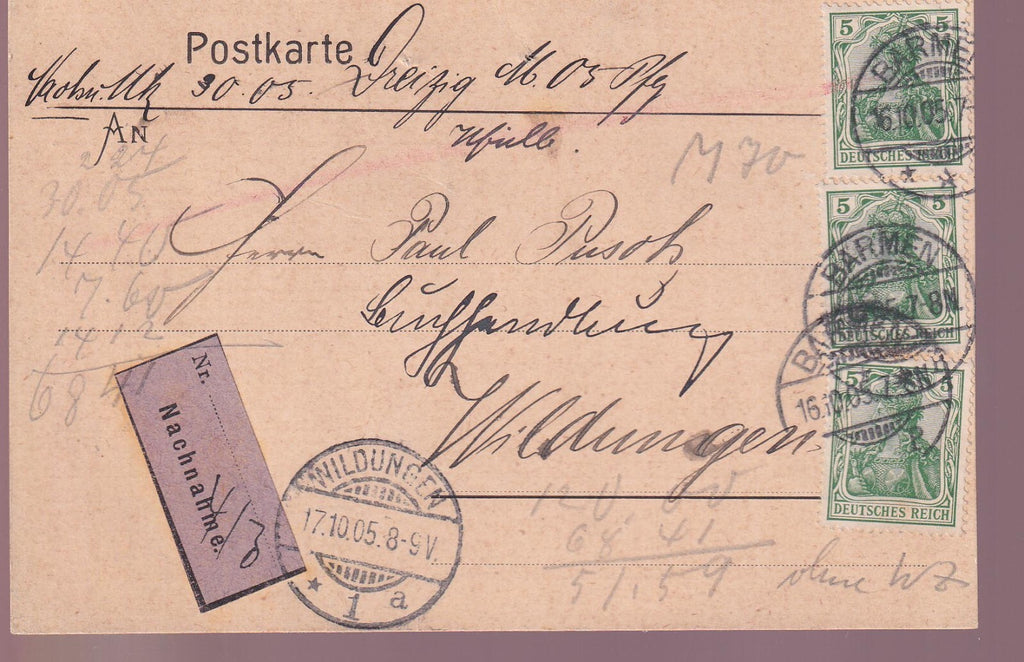 Postkarte
Nachn. Mk 30.05. Dreizig M. 05 Pfg
AN
M 30
Herrn Paul Pusch
Buchhandlung
Wildungen
2 24
30.05
14 40
7.60
14 12
68 41
Nr.
Nachnahme.
WILDUNGEN
17.10.05.8-9V.
* 1 a
120,00
68 41
51.59
ohne WZ
5 5
DEUTSCHES REICH
BARMEN
16.10.05.7-
* *
5 5
DEUTSCHES REICH
BARMEN
05.7-8N.
5 5
DEUTSCHES REICH
BARMEN
16.10.05.7-8N